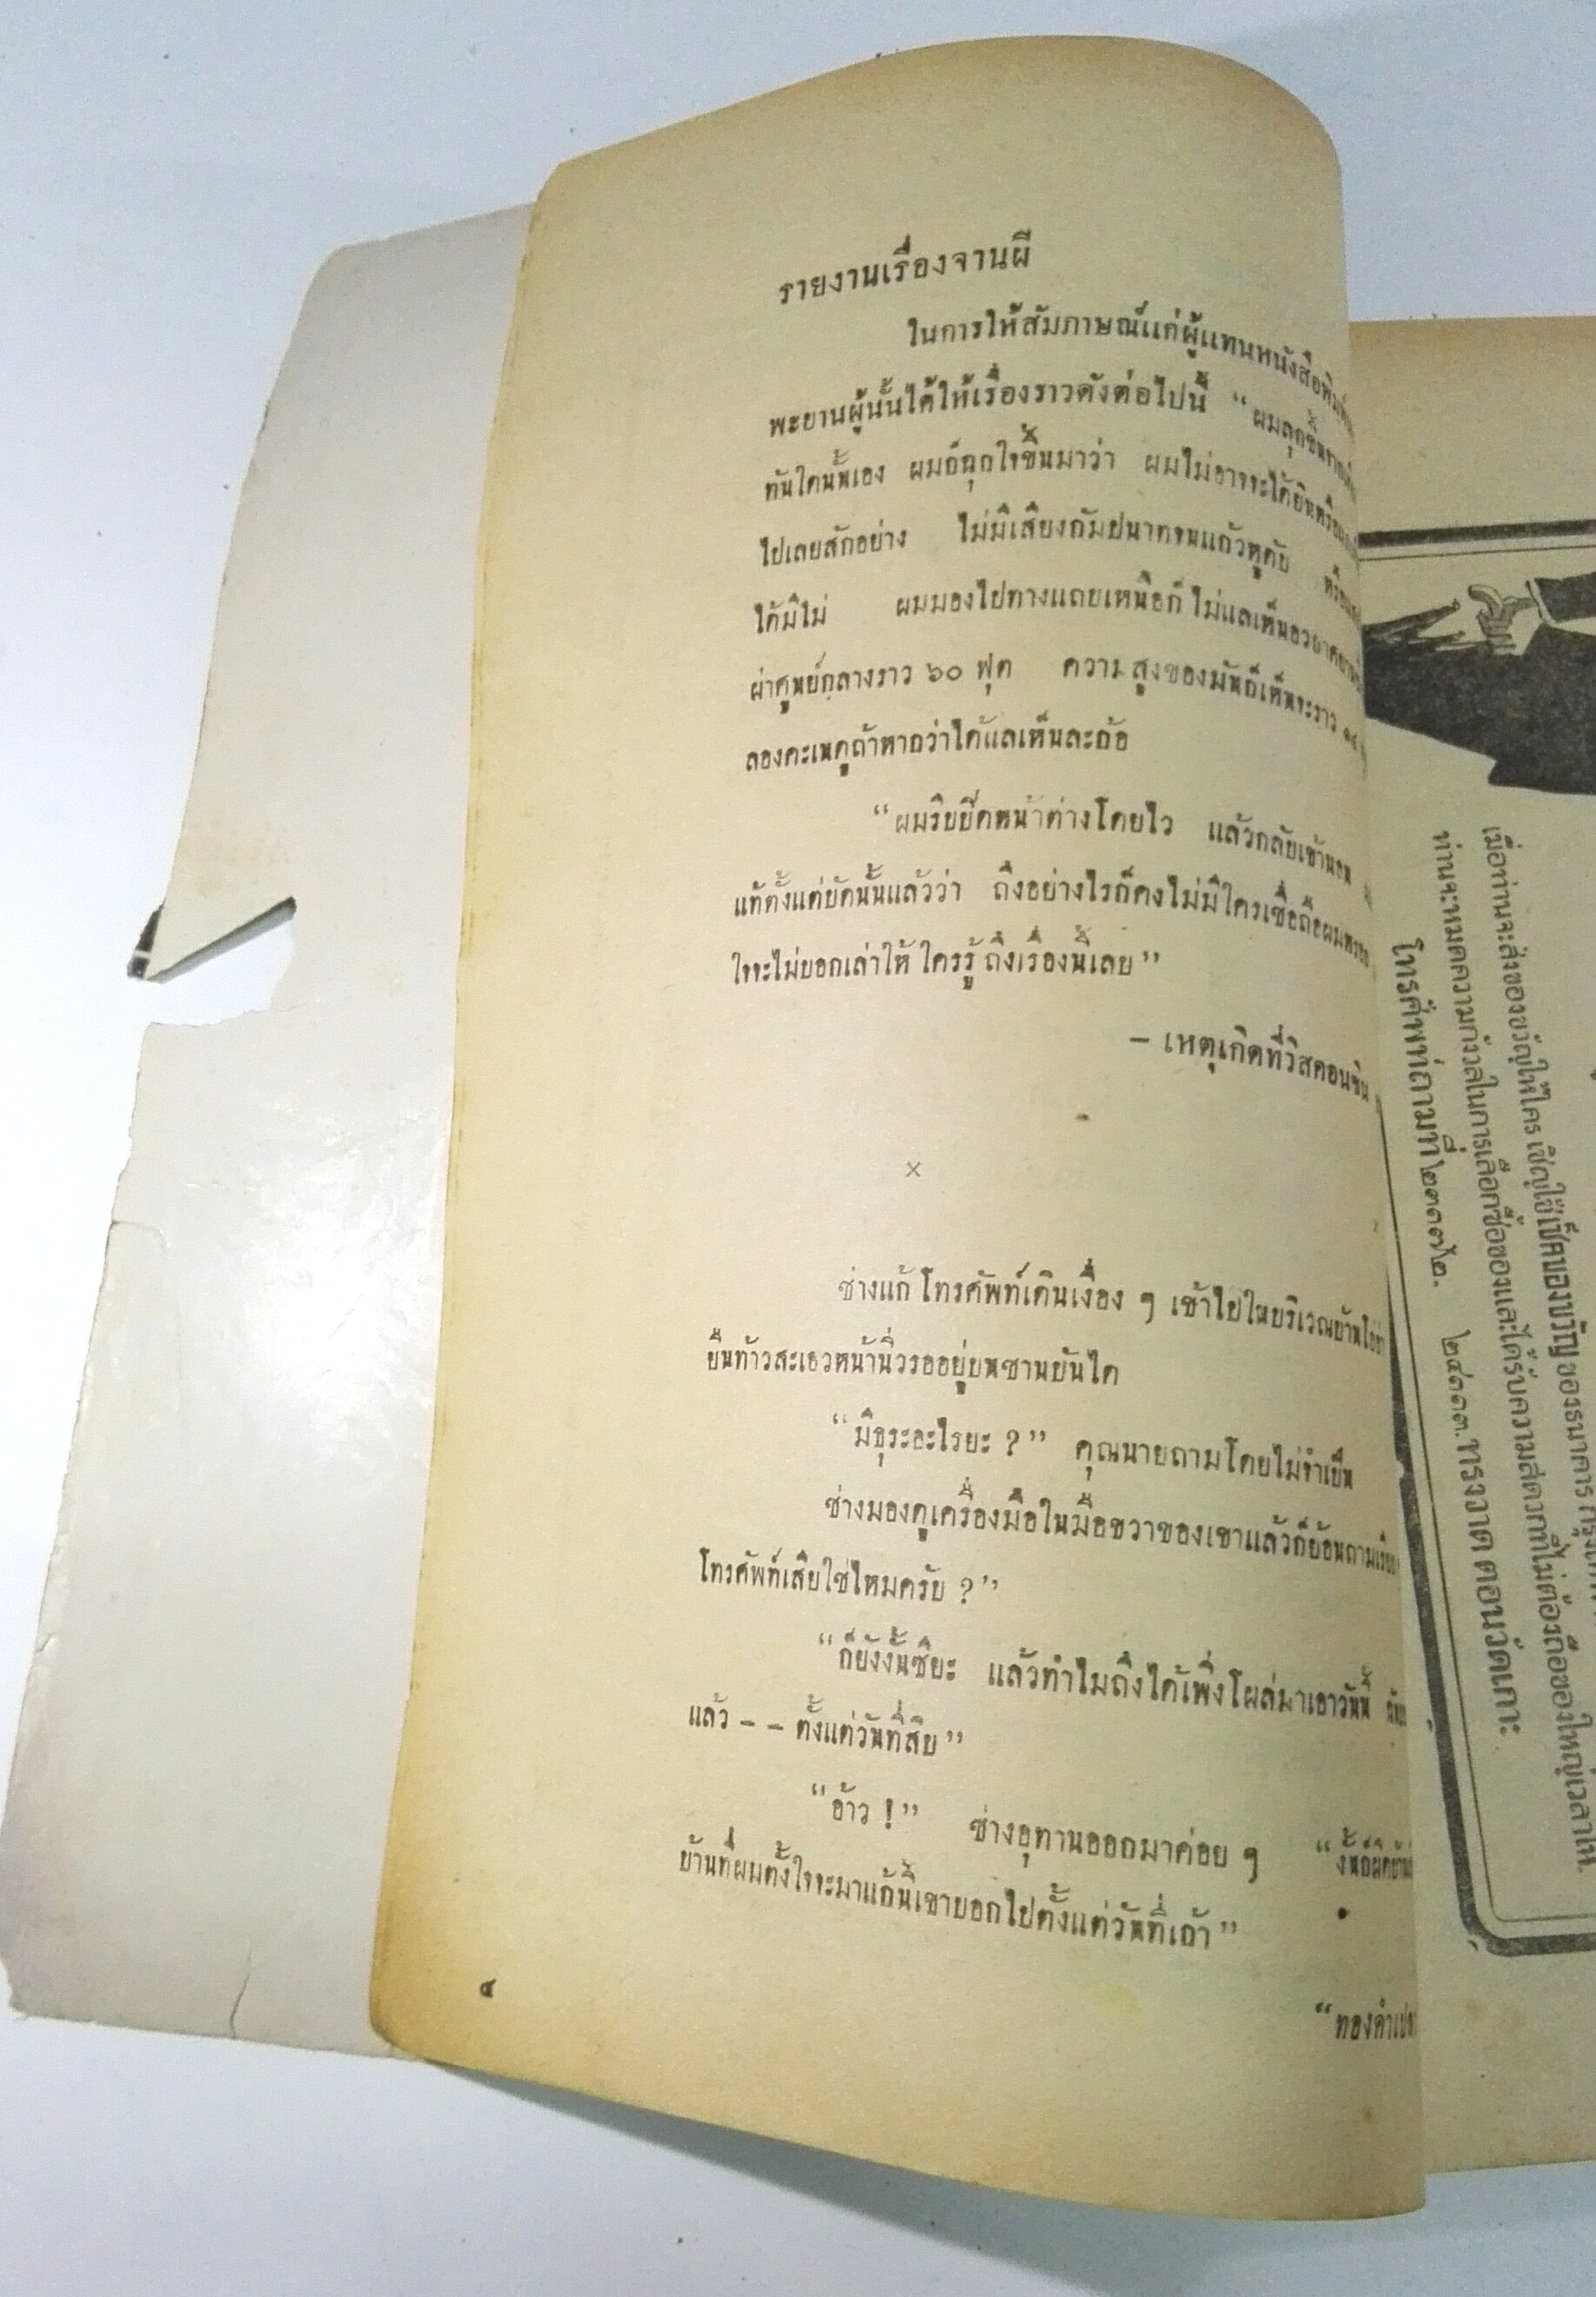 รายงานเรื่องจานผี
ในการให้สัมภาษณ์แก่ผู้แทนหนังสือพิมพ์
พะยานผู้นั้นได้ให้เรื่องราวดังต่อไปนี้ “ ผมลุกขึ้น
ทันใดนั้นเอง ผมก็ฉุกใจขึ้นมาว่า ผมไม่อาจจะได้ยิน
ไปเลยสักอย่าง ไม่มีเสียงกัมปนาทจนแก้วหูดับ
ได้มีไม่ ผมมองไปทางแถบเหนือก็ ไม่แลเห็น
ผ่าศูนย์กลางราว ๖๐ ฟุต ความ สูงของมันก็เห็นจะราว
ลองคะเนดูถ้าหากว่าได้แลเห็นละก้อ
“ ผมรีบปิดหน้าต่างโดยไว แล้วกลับเข้านอน
แท้ตั้งแต่บัดนั้นแล้วว่า ถึงอย่างไรก็คงไม่มีใครเชื่อถือผมหรอก
ใจจะไม่บอกเล่าให้ ใครรู้ ถึงเรื่องนี้เลย ”
– เหตุเกิดที่วิสคอนซิน
×
ช่างแก้ โทรศัพท์เดินเงื่อง ๆ เข้าไปในบริเวณบ้าน
ยืนท้าวสะเอวหน้านิ่วรออยู่บนชานบันได
“ มีธุระอะไรยะ ? ” คุณนายถามโดยไม่จำเป็น
ช่างมองดูเครื่องมือในมือขวาของเขาแล้วก็ย้อนถาม
โทรศัพท์เสียใช่ไหมครับ ? ”
“ ก็ยังงั้นซียะ แล้วทำไมถึงได้เพิ่งโผล่มาเอาวันนี้
แล้ว – – ตั้งแต่วันที่สิบ ”
“ อ้าว ! ” ช่างอุทานออกมาค่อย ๆ “ งั้นก็ผิดบ้าน
บ้านที่ผมตั้งใจจะมาแก้นี้เขาบอกไปตั้งแต่วันที่เก้า ”
“ ทองคำ
๔
เมื่อท่านจะส่งของขวัญให้ใคร เชิญใช้เช็คของขวัญ ของธนาคาร
ท่านจะหมดความกังวลในการเลือกซื้อของและได้รับความสดวกที่ไม่ต้องถือของใหญ่เวลา
โทรศัพท์ถามที่ ๒๓๓๗๒. ๒๔๓๓๓. ทรงวาด ตอนวัดเกาะ